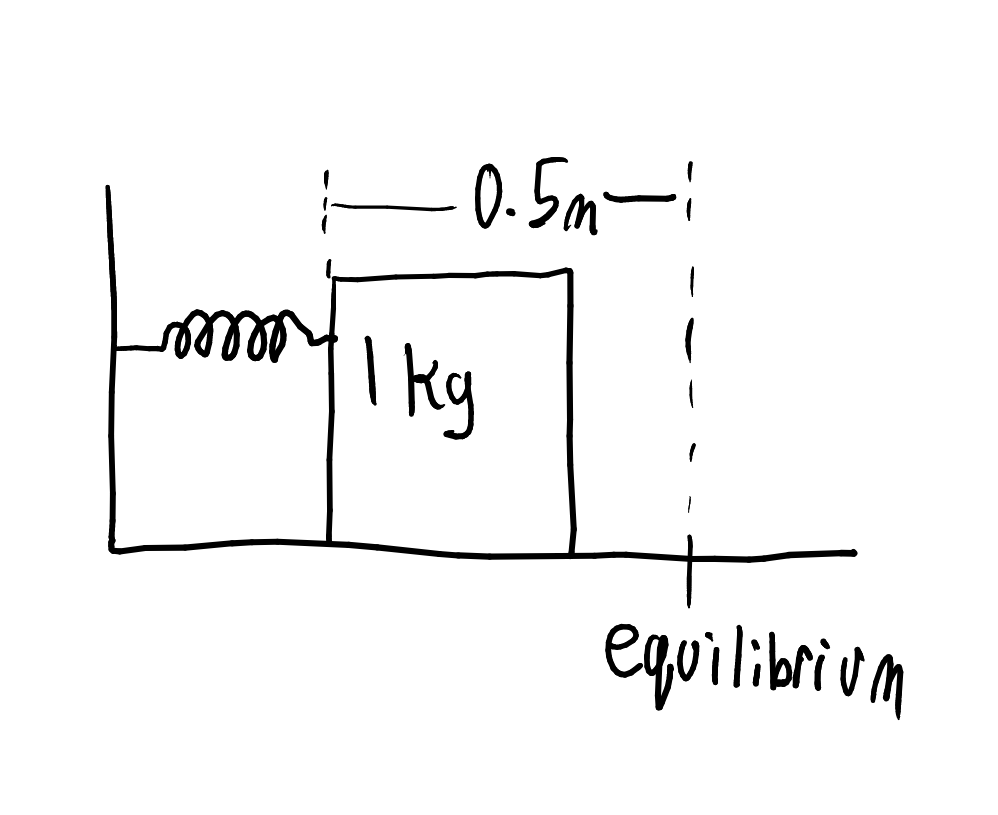 0.5m
1 kg
equilibrium